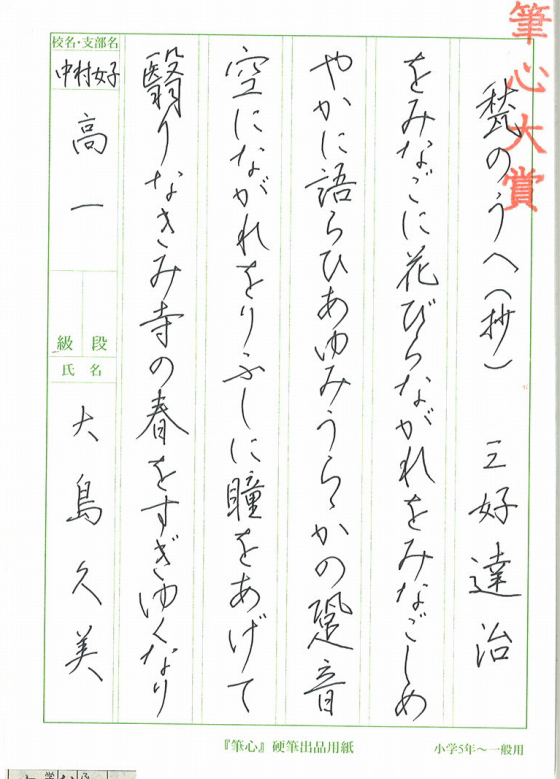 筆心大賞
甃のうへ(抄) 三好達治
をみなごに花びらながれをみなごしめ
やかに語らひあゆみうらゝかの跫音
空にながれをりふしに瞳をあげて
翳りなきみ寺の春をすぎゆくなり
校名・支部名
中村女子
高一
級 段
氏名
大島久美
『筆心』硬筆出品用紙
小学5年～一般用